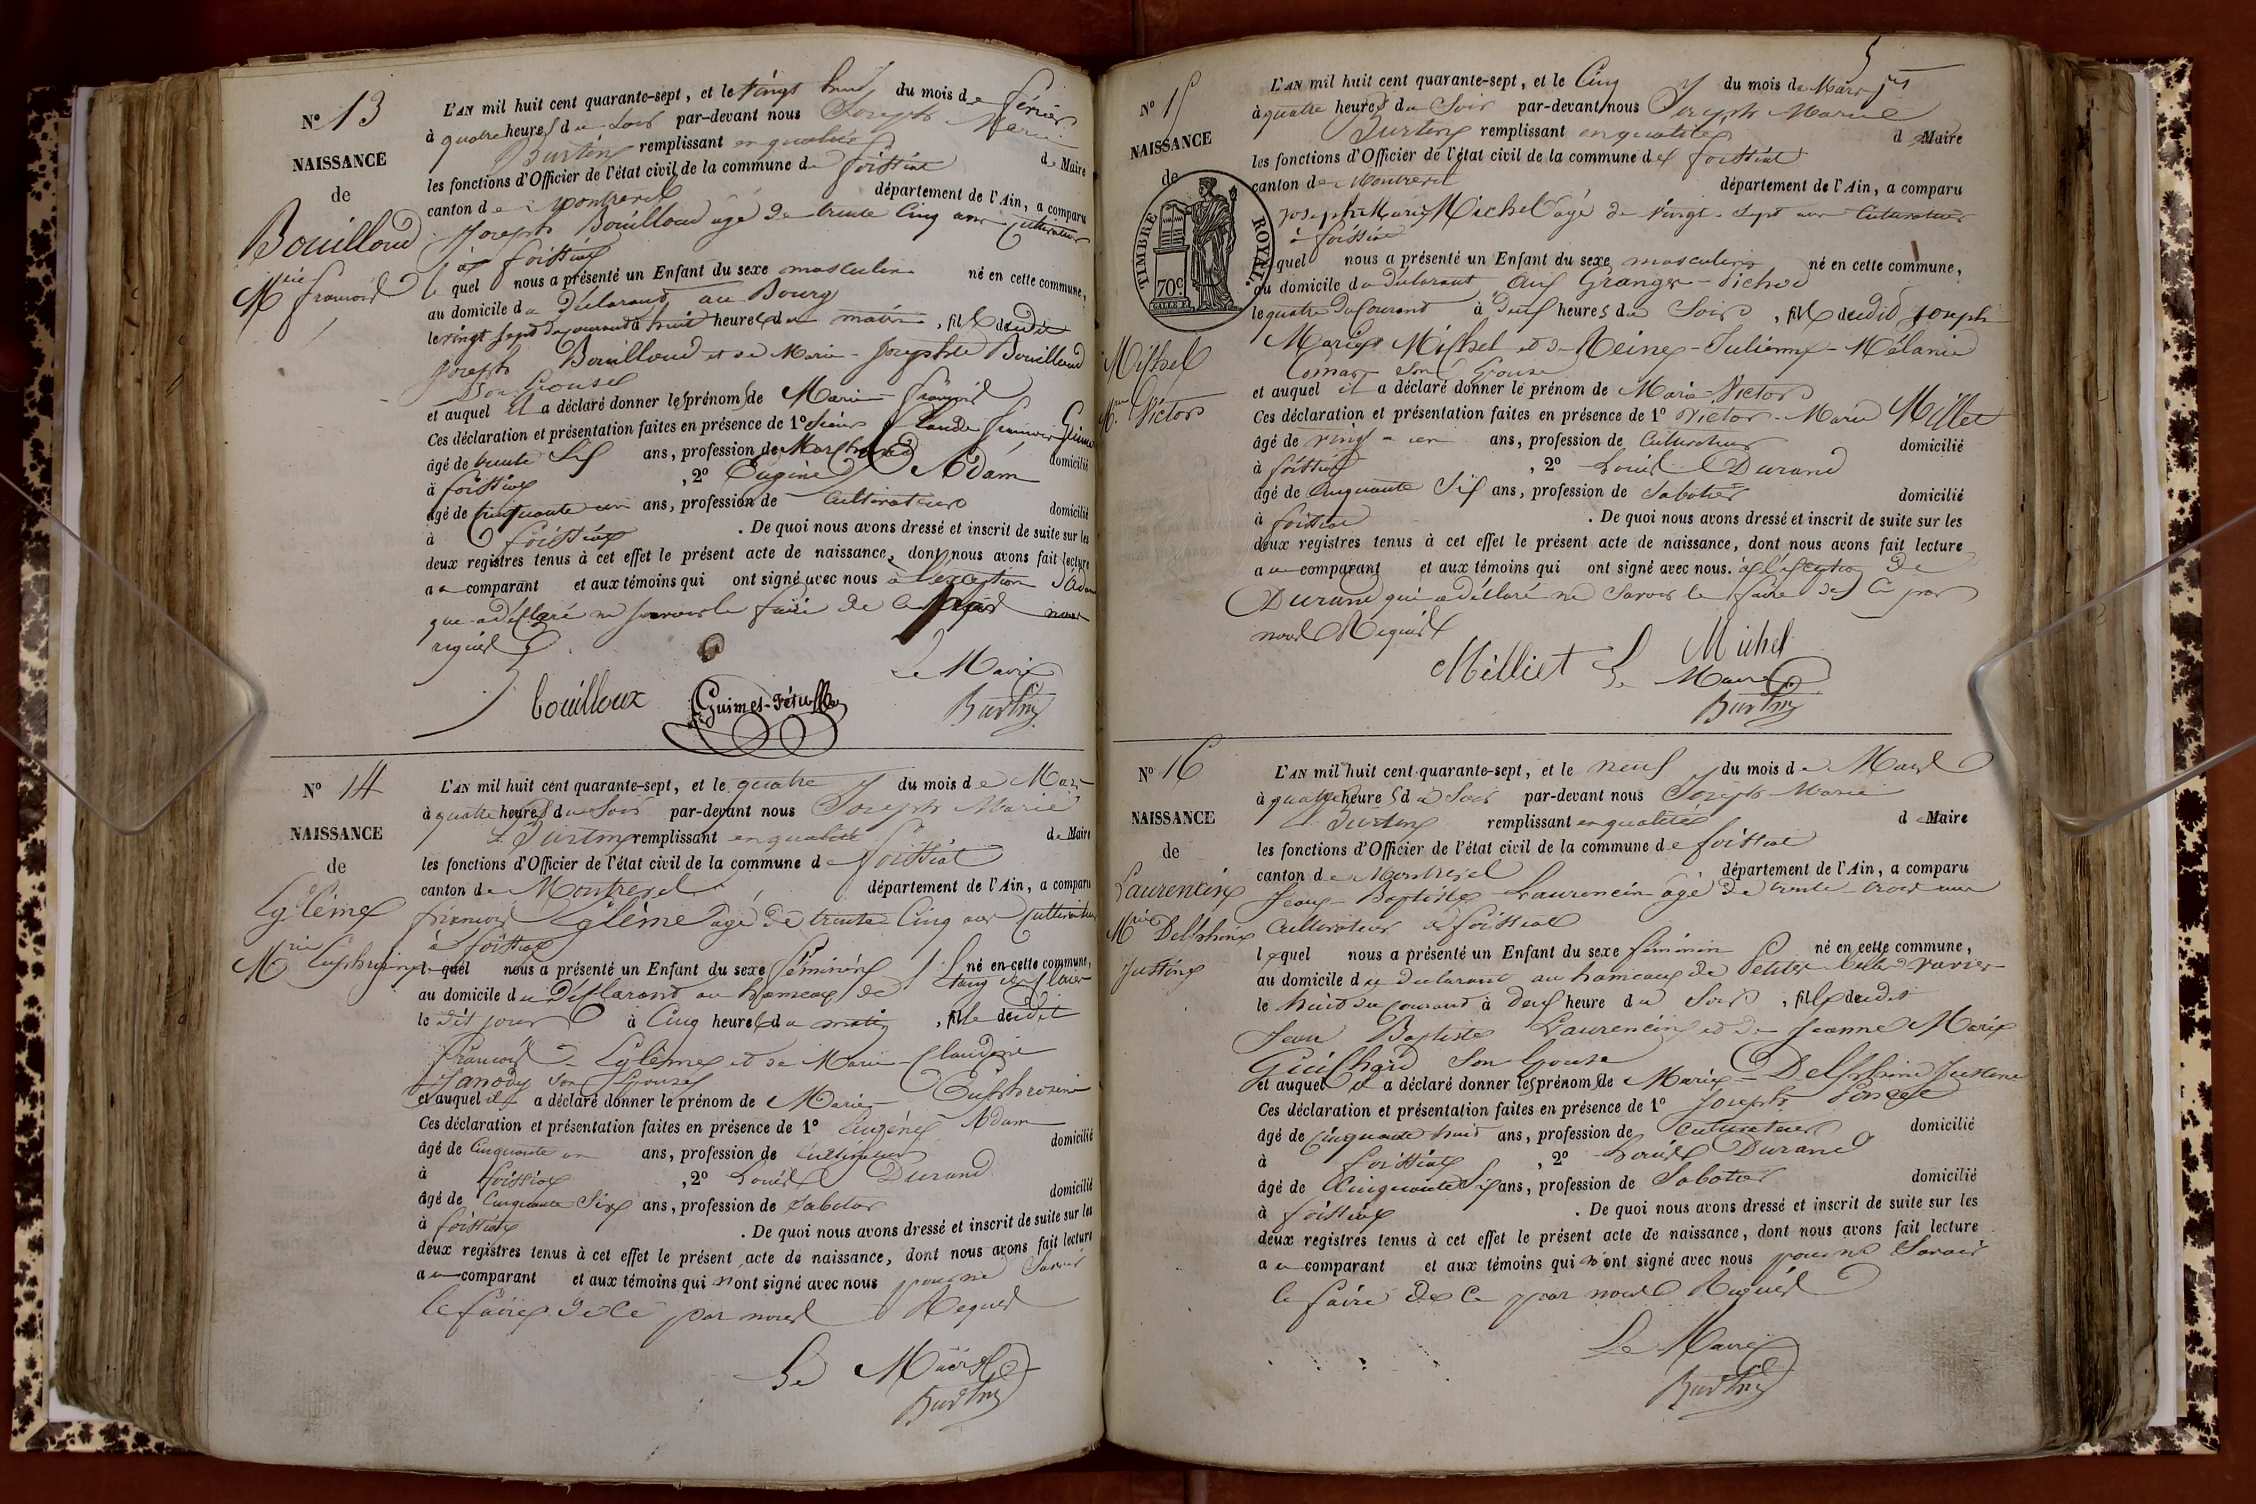 N° 13
NAISSANCE
de
Bouilloud
Mie françois
L'AN mil huit cent quarante-sept, et le vingt huit du mois de février
à quatre heures du soir par-devant nous Joseph Marie
Burtin remplissant en qualité de Maire
les fonctions d'Officier de l'état civil de la commune de foissiat
canton de Montrevel département de l'Ain, a comparu
Joseph Bouilloud agé de trente cinq ans cultivateur
à foissiat
lequel nous a présenté un Enfant du sexe masculin né en cette commune,
au domicile du déclarant au Bourg
le vingt sept du courant à huit heures du matin, fils dudit
Joseph Bouilloud et de Marie-Josephte Bouilloud
son Epouse
et auquel il a déclaré donner les prénoms de Marie françois
Ces déclaration et présentation faites en présence de 1° Sieur Claude françois
âgé de trente six ans, profession de Marchand domicilié
à foissiat, 2° Eugène Adam
âgé de cinquante un ans, profession de cultivateur domicilié
à foissiat. De quoi nous avons dressé et inscrit de suite sur les
deux registres tenus à cet effet le présent acte de naissance, dont nous avons fait lecture
au comparant et aux témoins qui ont signé avec nous à l'exception d'Adam
qui a déclaré ne savoir le faire de ce par nous
requis
Le Maire
bouilloux
Burtin
N° 14
NAISSANCE
de
Eglème
Mrie Euphrosine
L'AN mil huit cent quarante-sept, et le quatre du mois de Mars
à quatre heures du soir par-devant nous Joseph Marie
Burtin remplissant en qualité de Maire
les fonctions d'Officier de l'état civil de la commune de foissiat
canton de Montrevel département de l'Ain, a comparu
françois Eglème agé de trente cinq ans cultivateur
à foissiat
lequel nous a présenté un Enfant du sexe féminin né en cette commune,
au domicile du déclarant au hameau de
le dit jour à cinq heures du matin, fille dudit
françois Eglème et de Marie-Claudine
son Epouse
et auquel il a déclaré donner le prénom de Marie Euphrosine
Ces déclaration et présentation faites en présence de 1° Eugène Adam
âgé de cinquante un ans, profession de cultivateur domicilié
à foissiat, 2° Louis Durand
âgé de cinquante six ans, profession de sabotier domicilié
à foissiat. De quoi nous avons dressé et inscrit de suite sur les
deux registres tenus à cet effet le présent acte de naissance, dont nous avons fait lecture
au comparant et aux témoins qui n'ont signé avec nous pour ne savoir
le faire de ce par nous Requis
Le Maire
Burtin
5
N° 15
NAISSANCE
de
TIMBRE ROYAL
70c.
Michel
Victor
L'AN mil huit cent quarante-sept, et le cinq du mois de Mars
à quatre heures du soir par-devant nous Joseph Marie
Burtin remplissant en qualité de Maire
les fonctions d'Officier de l'état civil de la commune de foissiat
canton de Montrevel département de l'Ain, a comparu
Joseph Marie Michel agé de vingt-sept ans cultivateur
à foissiat
lequel nous a présenté un Enfant du sexe masculin né en cette commune,
au domicile du déclarant aux Granges-Pichod
le quatre du courant à deux heures du soir, fils dudit Joseph
Marie Michel et de Reine-Julienne-Mélanie
son Epouse
et auquel il a déclaré donner le prénom de Marie Victor
Ces déclaration et présentation faites en présence de 1° Victor-Marie Millet
âgé de vingt-un ans, profession de cultivateur domicilié
à foissiat, 2° Louis Durand
âgé de cinquante six ans, profession de sabotier domicilié
à foissiat. De quoi nous avons dressé et inscrit de suite sur les
deux registres tenus à cet effet le présent acte de naissance, dont nous avons fait lecture
au comparant et aux témoins qui ont signé avec nous. à l'exception de
Durand qui a déclaré ne savoir le faire de ce par
nous Requis
Michel
Milliet Le Maire
Burtin
N° 16
NAISSANCE
de
Laurencin
Mrie Delphine
Justine
L'AN mil huit cent quarante-sept, et le neuf du mois de Mars
à quatre heures du soir par-devant nous Joseph Marie
Burtin remplissant en qualité de Maire
les fonctions d'Officier de l'état civil de la commune de foissiat
canton de Montrevel département de l'Ain, a comparu
Jean-Baptiste Laurencin agé de trente trois ans
cultivateur à foissiat
lequel nous a présenté un Enfant du sexe féminin né en cette commune,
au domicile du déclarant au hameau de
le huit du courant à deux heure du soir, fille dudit
Jean Baptiste Laurencin et de Jeanne Marie
Guichard son Epouse
et auquel il a déclaré donner les prénoms de Marie-Delphine Justine
Ces déclaration et présentation faites en présence de 1° Joseph Poncet
âgé de cinquante huit ans, profession de cultivateur domicilié
à foissiat, 2° Louis Durand
âgé de cinquante six ans, profession de sabotier domicilié
à foissiat. De quoi nous avons dressé et inscrit de suite sur les
deux registres tenus à cet effet le présent acte de naissance, dont nous avons fait lecture
au comparant et aux témoins qui n'ont signé avec nous pour ne savoir
le faire de ce par nous Requis
Le Maire
Burtin